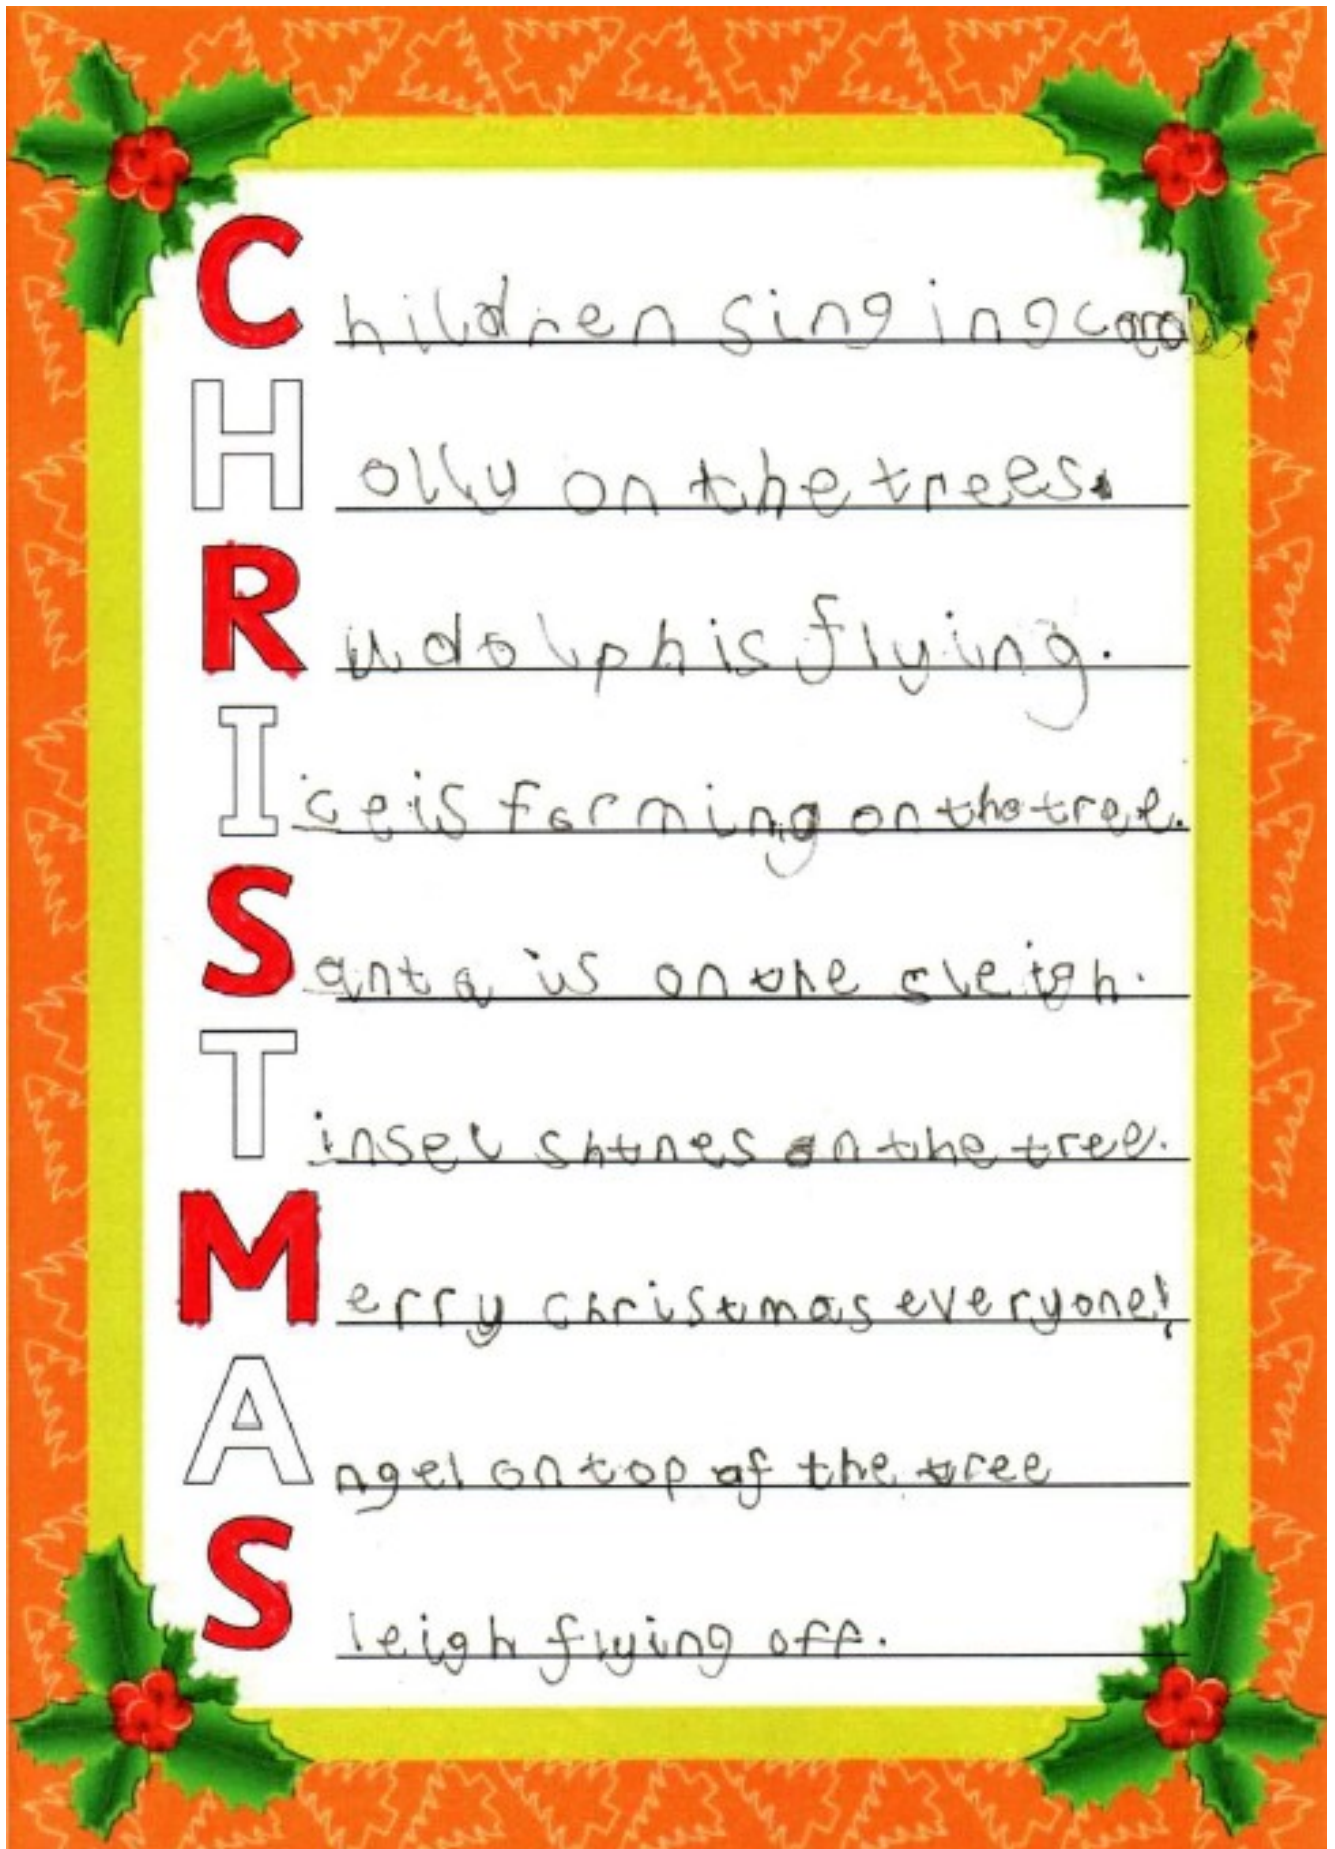 Children singing carols.
Holly on the trees.
Rudolph is flying.
Ice is forming on the tree.
Santa is on the sleigh.
Tinsel shines on the tree.
Merry christmas everyone!
Angel on top of the tree
Sleigh flying off.